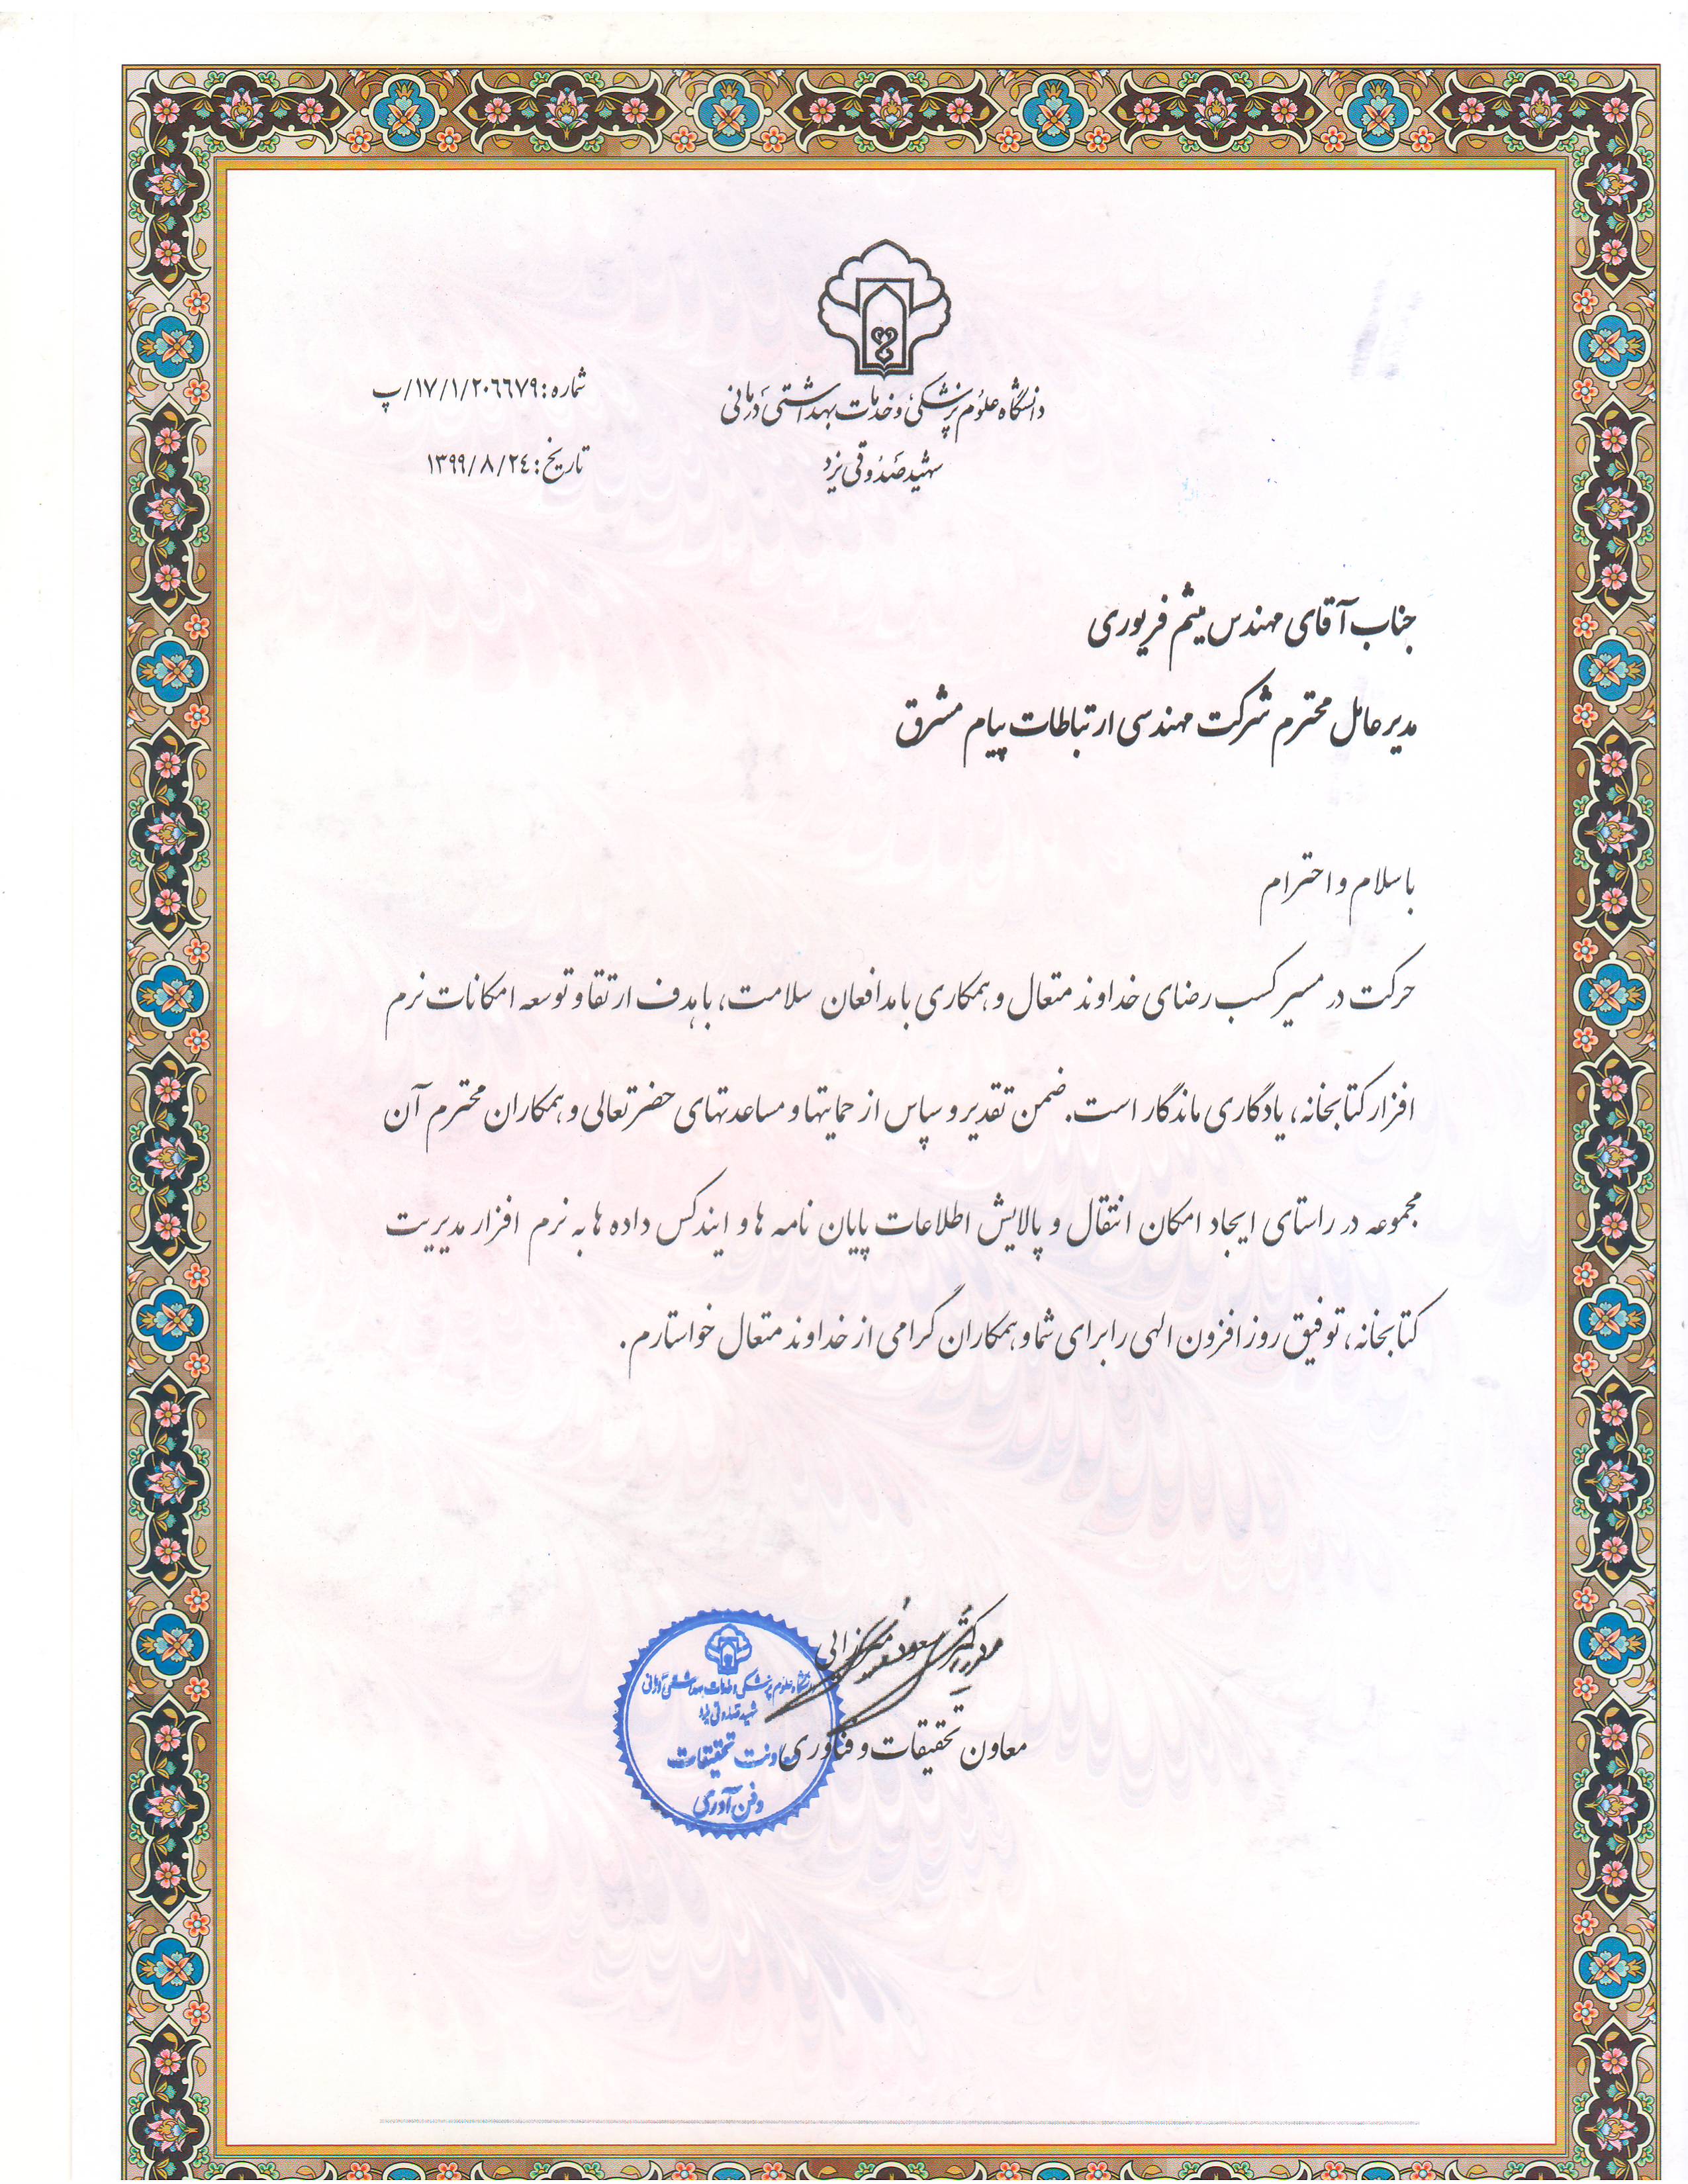 دانشگاه علوم پزشکی و خدمات بهداشتی درمانی
شهید صدوقی یزد
شماره: ۱۷/۱/۲۰۶۶۷۹/پ
تاریخ: ۱۳۹۹/۸/۲۴
جناب آقای مهندس میثم فریوری
مدیرعامل محترم شرکت مهندسی ارتباطات پیام مشرق
با سلام و احترام
حرکت در مسیر کسب رضای خداوند متعال و همکاری با مدافعان سلامت، با هدف ارتقا و توسعه امکانات نرم
افزار کتابخانه، یادگاری ماندگار است. ضمن تقدیر و سپاس از حمایتها و مساعدتهای حضرتعالی و همکاران محترم آن
مجموعه در راستای ایجاد امکان انتقال و پالایش اطلاعات پایان نامه ها و ایندکس داده ها به نرم افزار مدیریت
کتابخانه، توفیق روز افزون الهی را برای شما و همکاران گرامی از خداوند متعال خواستارم.
دکتر مسعود میرزائی
معاون تحقیقات و فناوری
دانشگاه علوم پزشکی و خدمات بهداشتی درمانی
شهید صدوقی یزد
معاونت تحقیقات
و فن آوری